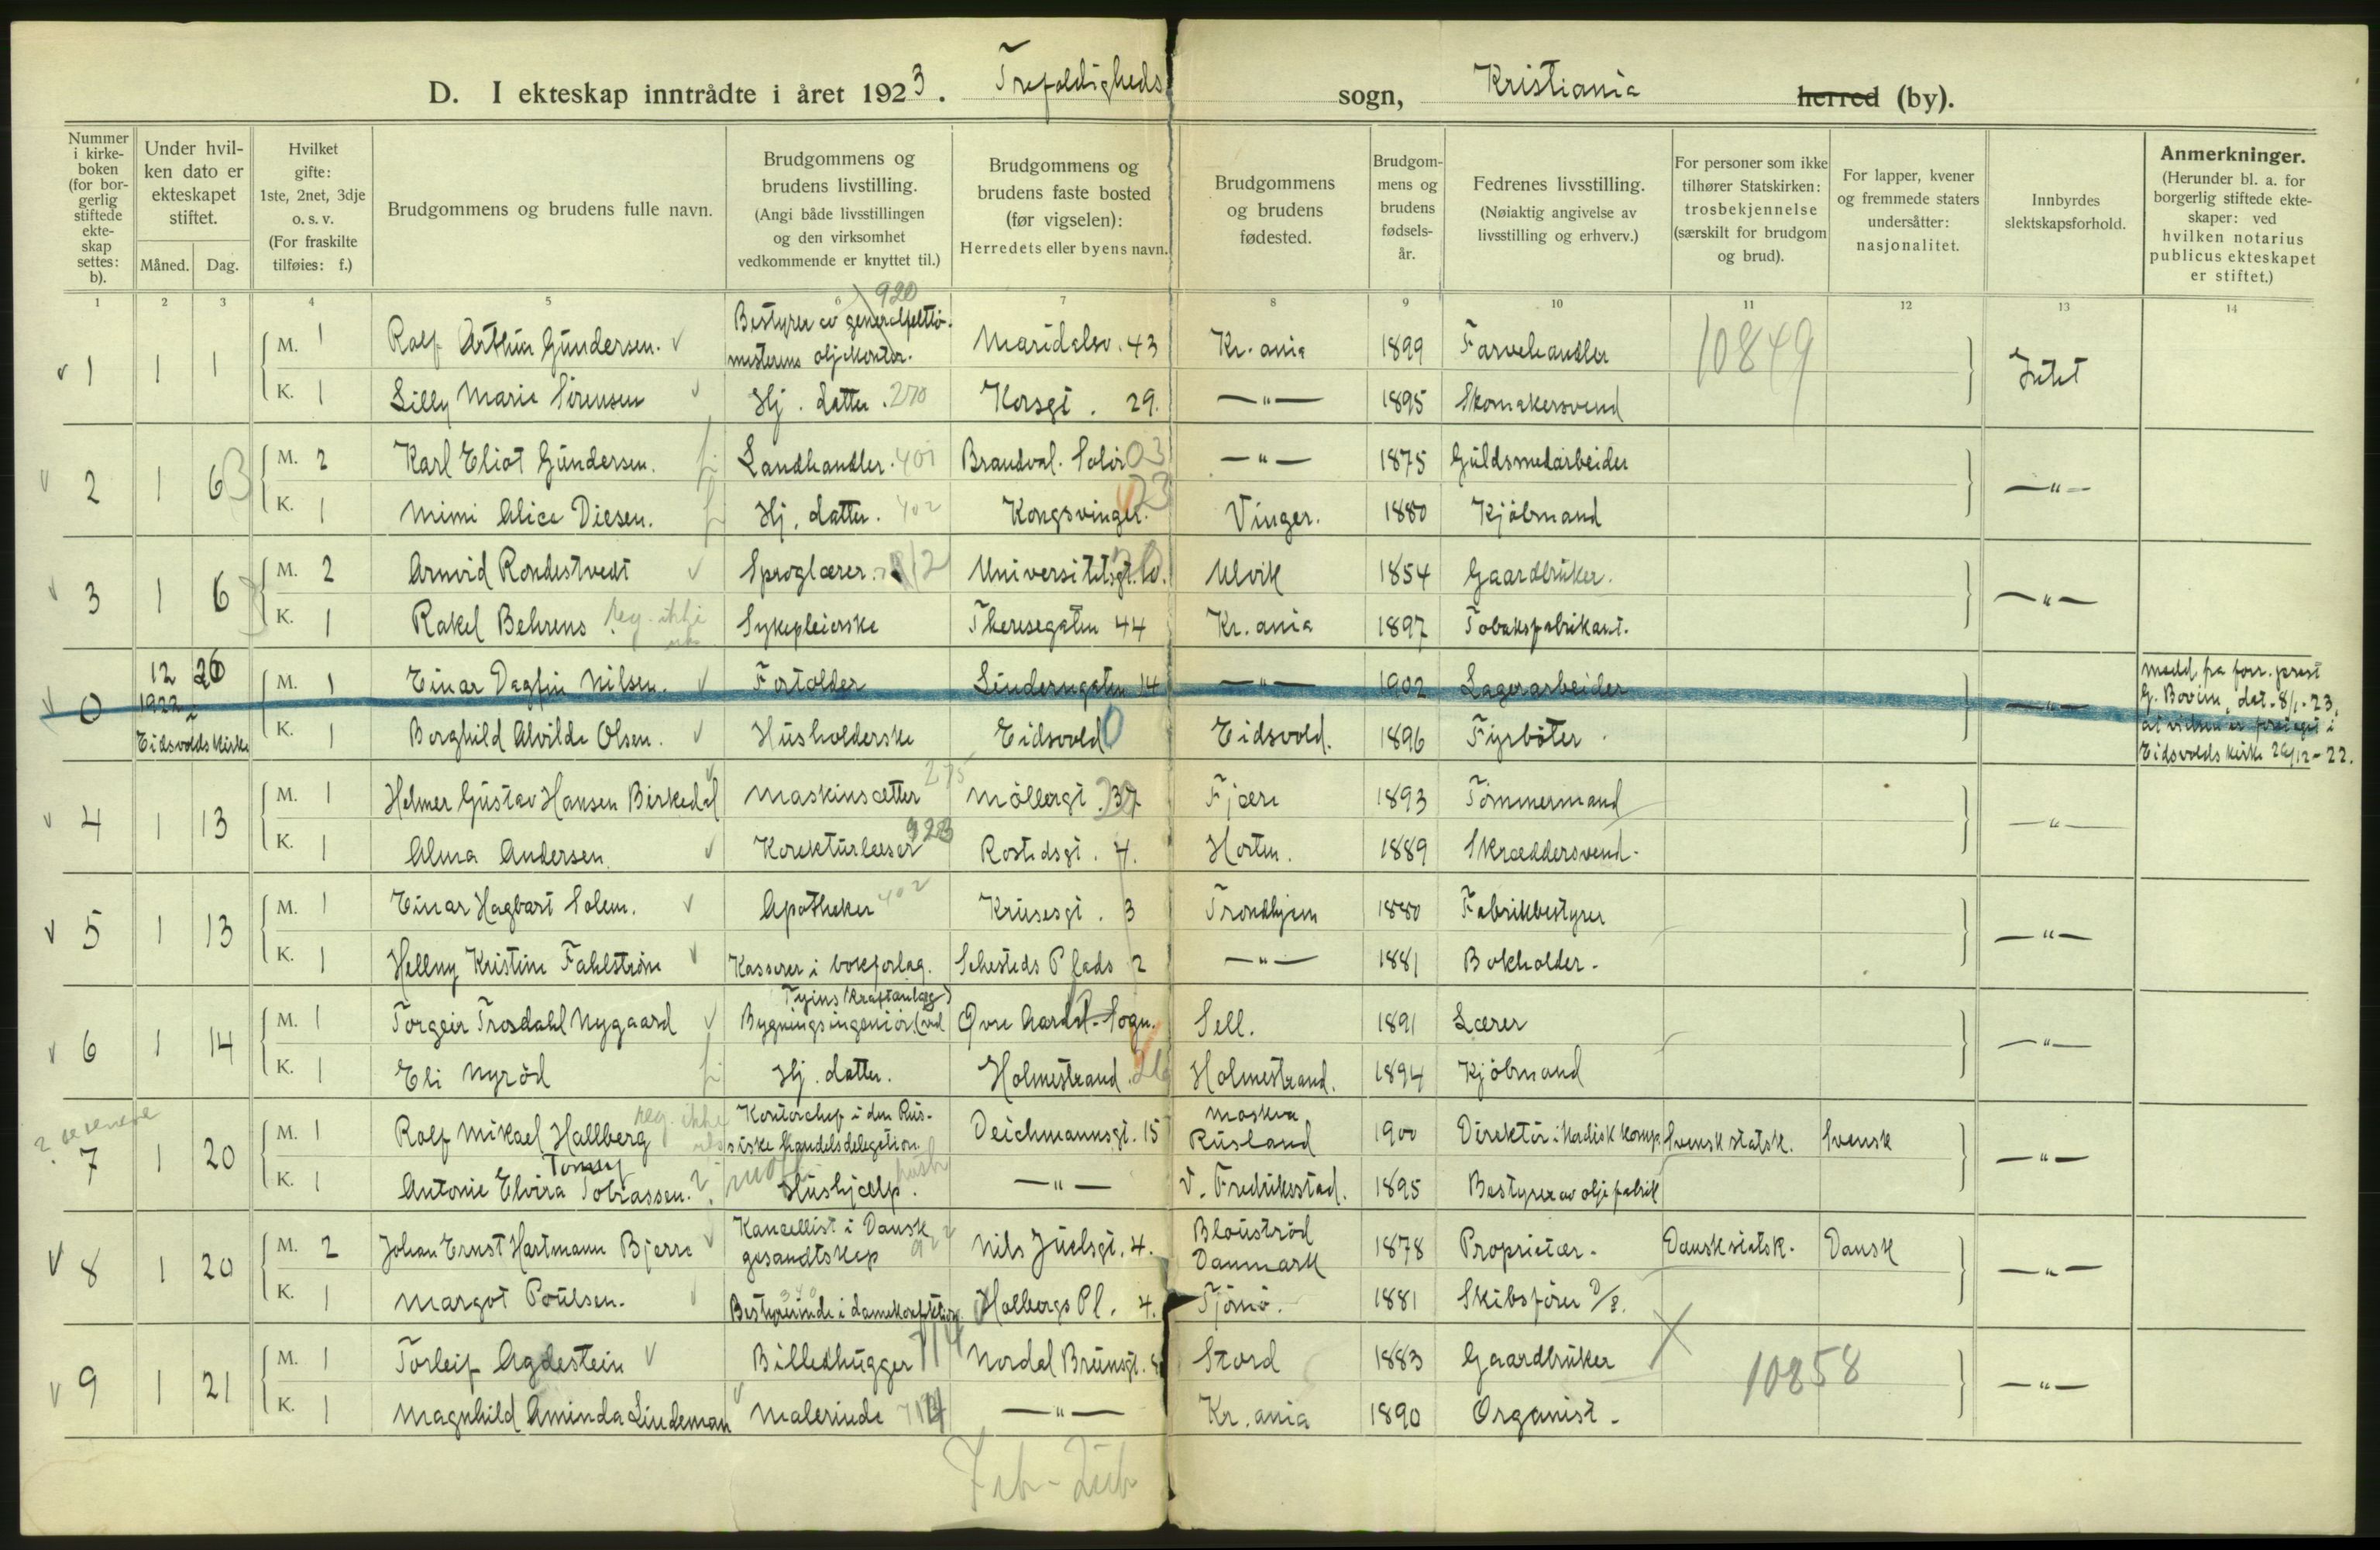 D. I ekteskap inntrådte i året 1923. Trefoldigheds sogn, Kristiania herred (by).
Nummer i kirkeboken (for borgerlig stiftede ekteskap settes: b).
Under hvilken dato er ekteskapet stiftet.
Måned. Dag.
Hvilket gifte: 1ste, 2net, 3dje o. s. v. (For fraskilte tilføies: f.)
Brudgommens og brudens fulle navn.
Brudgommens og brudens livstilling. (Angi både livsstillingen og den virksomhet vedkommende er knyttet til.)
Brudgommens og brudens faste bosted (før vigselen): Herredets eller byens navn.
Brudgommens og brudens fødested.
Brudgommens og brudens fødselsår.
Fedrenes livsstilling. (Nøiaktig angivelse av livsstilling og erhverv.)
For personer som ikke tilhører Statskirken: trosbekjennelse (særskilt for brudgom og brud).
For lapper, kvener og fremmede staters undersåtter: nasjonalitet.
Innbyrdes slektskapsforhold.
Anmerkninger. (Herunder bl. a. for borgerlig stiftede ekteskaper: ved hvilken notarius publicus ekteskapet er stiftet.)
1 2 3 4 5 6 7 8 9 10 11 12 13 14
920
1 1 1 M. 1 Ralf Arthur Gundersen. Bestyrer av generalfelttøimesterens oljekontor. Maridalsv. 43 Kr.ania 1899 Farvehandler 10849 Intet
K. 1 Lilly Marie Sörensen Hj. datter. 270 Korsgt. 29. —"— 1895 Skomakersvend
2 1 6 M. 2 Karl Eliot Gundersen. Landhandler. 401 Brandval. Solör 03 —"— 1875 Guldsmedarbeider —"—
K. 1 Mimi Alice Diesen. Hj. datter. 402 Kongsvinger. Vinger. 1880 Kjöbmand
3 1 6 M. 2 Arnvid Rondestvedt Sproglærer. Universitetsgt. Ulvik 1854 Gaardbruker. —"—
K. 1 Rakel Behrens reg. ikke Sykepleierske Theresegaten 44 Kr.ania 1897 Tobaksfabrikant.
0 12 26 1922 i Eidsvolds kirke M. 1 Einar Dagfin Nilsen. Fortolder Linderngaten 14 —"— 1902 Lagerarbeider —"— Medd. fra forr. prest G. Bovim, dat. 8/1-23, at vielsen er foretaget i Eidsvolds kirke 26/12-22.
K. 1 Borghild Alvilde Olsen. Husholderske Eidsvold 0 Eidsvold. 1896 Fyrböter
4 1 13 M. 1 Helmer Gustav Hansen Birkedal Maskinsætter 275 Möllergt. 37 Fjære 1893 Tömmermand —"—
K. 1 Alma Andersen. Korekturlæser 923 Rostedsgt. 4. Horten. 1889 Skræddersvend.
5 1 13 M. 1 Einar Hagbart Solem. Apotheker 402 Krusesgt. 3 Trondhjem 1880 Fabrikbestyrer —"—
K. 1 Hellny Kristine Fahlström Kasserer i bokforlag. Sehesteds Plads 2 —"— 1881 Bokholder.
6 1 14 M. 1 Torgeir Trosdahl Nygaard Bygningsingeniör (ved Tyins kraftanlæg) Øvre Aardal. Sogn. Sell. 1891 Lærer —"—
K. 1 Eli Nyröd Hj. datter. Holmestrand. Holmestrand. 1894 Kjöbmand
7 1 20 M. 1 Ralf Mikael Hallberg reg. ikke Kontorchef i den Russiske Handelsdelegation Deichmannsgt. 15 Moskva Rusland 1900 Direktör i Nordisk komp. Svensk statsk. Svensk —"—
K. 1 Antonie Elvira Tobiassen. Hushjælp. —"— V. Fredriksstad. 1895 Bestyrer av oljefabrik
8 1 20 M. 2 Johan Ernst Hartmann Bjerre Kancellist i Dansk gesandtskap 922 Nils Juelsgt. 4. Bloustród Danmark 1878 Proprietær. Dansk statsk. Dansk —"—
K. 1 Margot Poulsen. Bestyrerinde i damekonfektion 340 Holbergs Pl. 4. Tjömö. 1881 Skibsförer D/S.
9 1 21 M. 1 Torleif Agdestein Billedhugger 714 Nordal Brunsgt. Stord 1883 Gaardbruker 10858 —"—
K. 1 Magnhild Aminda Lindeman Malerinde 714 —"— Kr.ania 1890 Organist.